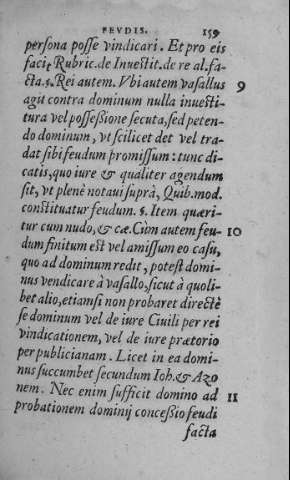 FEVDIS. 159
persona posse vindicari. Et pro eis
facit Rubric. de Inuestit. de re al. fa-
cta. §. Rei autem. Vbi autem vasallus 9
agit contra dominum nulla inuesti-
tura vel possessione secuta, sed peten-
do dominum, vt scilicet det vel tra-
dat sibi feudum promissum: tunc di-
catis, quo iure & qualiter agendum
sit, vt plenè notaui suprà, Quib. mod.
constituatur feudum. §. Item quæri-
tur cum nudo, & cæ. Cùm autem feu- 10
dum finitum est vel amissum eo casu,
quo ad dominum redit, potest domi-
nus vendicare à vasallo, sicut à quoli-
bet alio, etiamsi non probaret directè
se dominum vel de iure Ciuili per rei
vindicationem, vel de iure prætorio
per publicianam. Licet in ea domi-
nus succumbet secundum Ioh. & Azo
nem. Nec enim sufficit domino ad 11
probationem dominij concessio feudi
facta